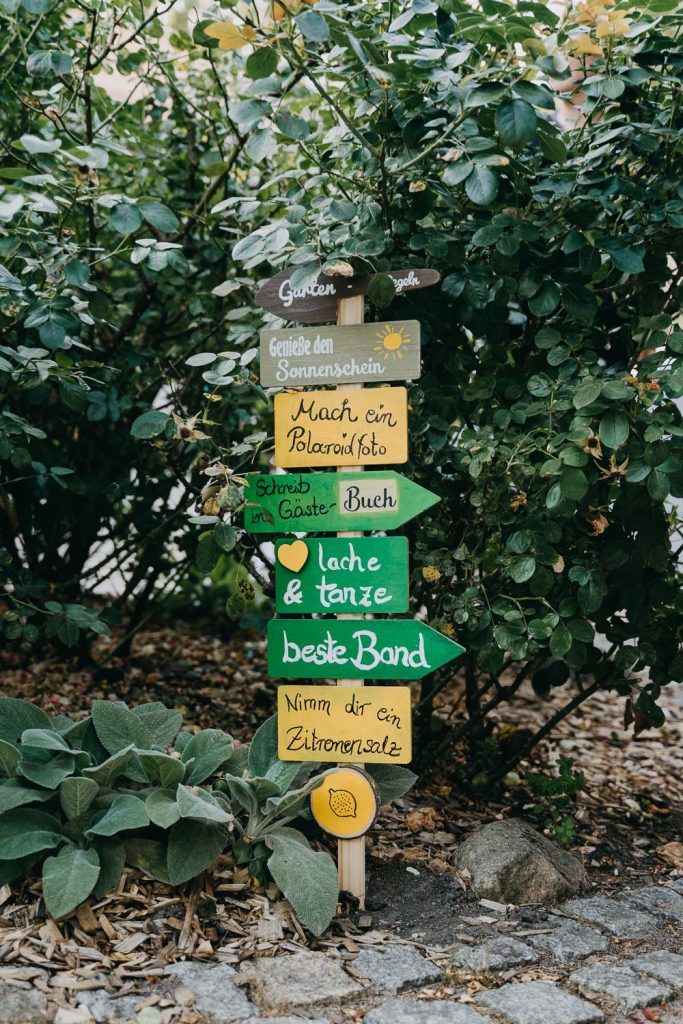 Garten - egeln
Genieße den
Sonnenschein
Mach ein
Polaroidfoto
Schreib
ins Gäste- Buch
lache
& tanze
beste Band
Nimm dir ein
Zitronensalz